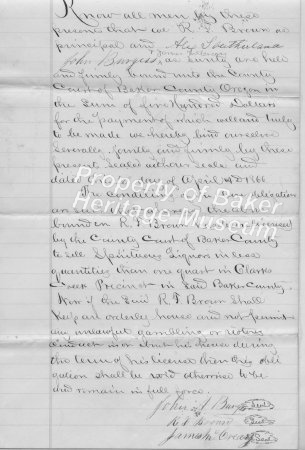 Know all men by these
presents that we R. F. Brown as
principal and Alex Southerland
John Burgess, as surity are held
and firmly bound unto the County
Court of Baker County Oregon in
the Sum of five Hundred Dollars
for the payment of which well and truly
to be made we hereby bind ourselves
Severaly, jointly and firmly by these
present Sealed with our Seals and
dated this day of April AD 1866
The Condition of the above obligation
are such that whereas the above
bounden R. F. Brown
by the County Court of Baker County
to sell Spirituous Liquors in less
quantities than one quart in Clarks
Creek Precinct in Said Baker County.
Now if the Said R. F. Brown Shall
Keep an orderly house and not permit
any unlawful gambling or riotous
conduct in or about his house during
the term of his license then this obli
gation shall be void otherwise to be
and remain in full force.
John Burgess Seal
R F Brown Seal
James Seal
Property of Baker
Heritage Museum